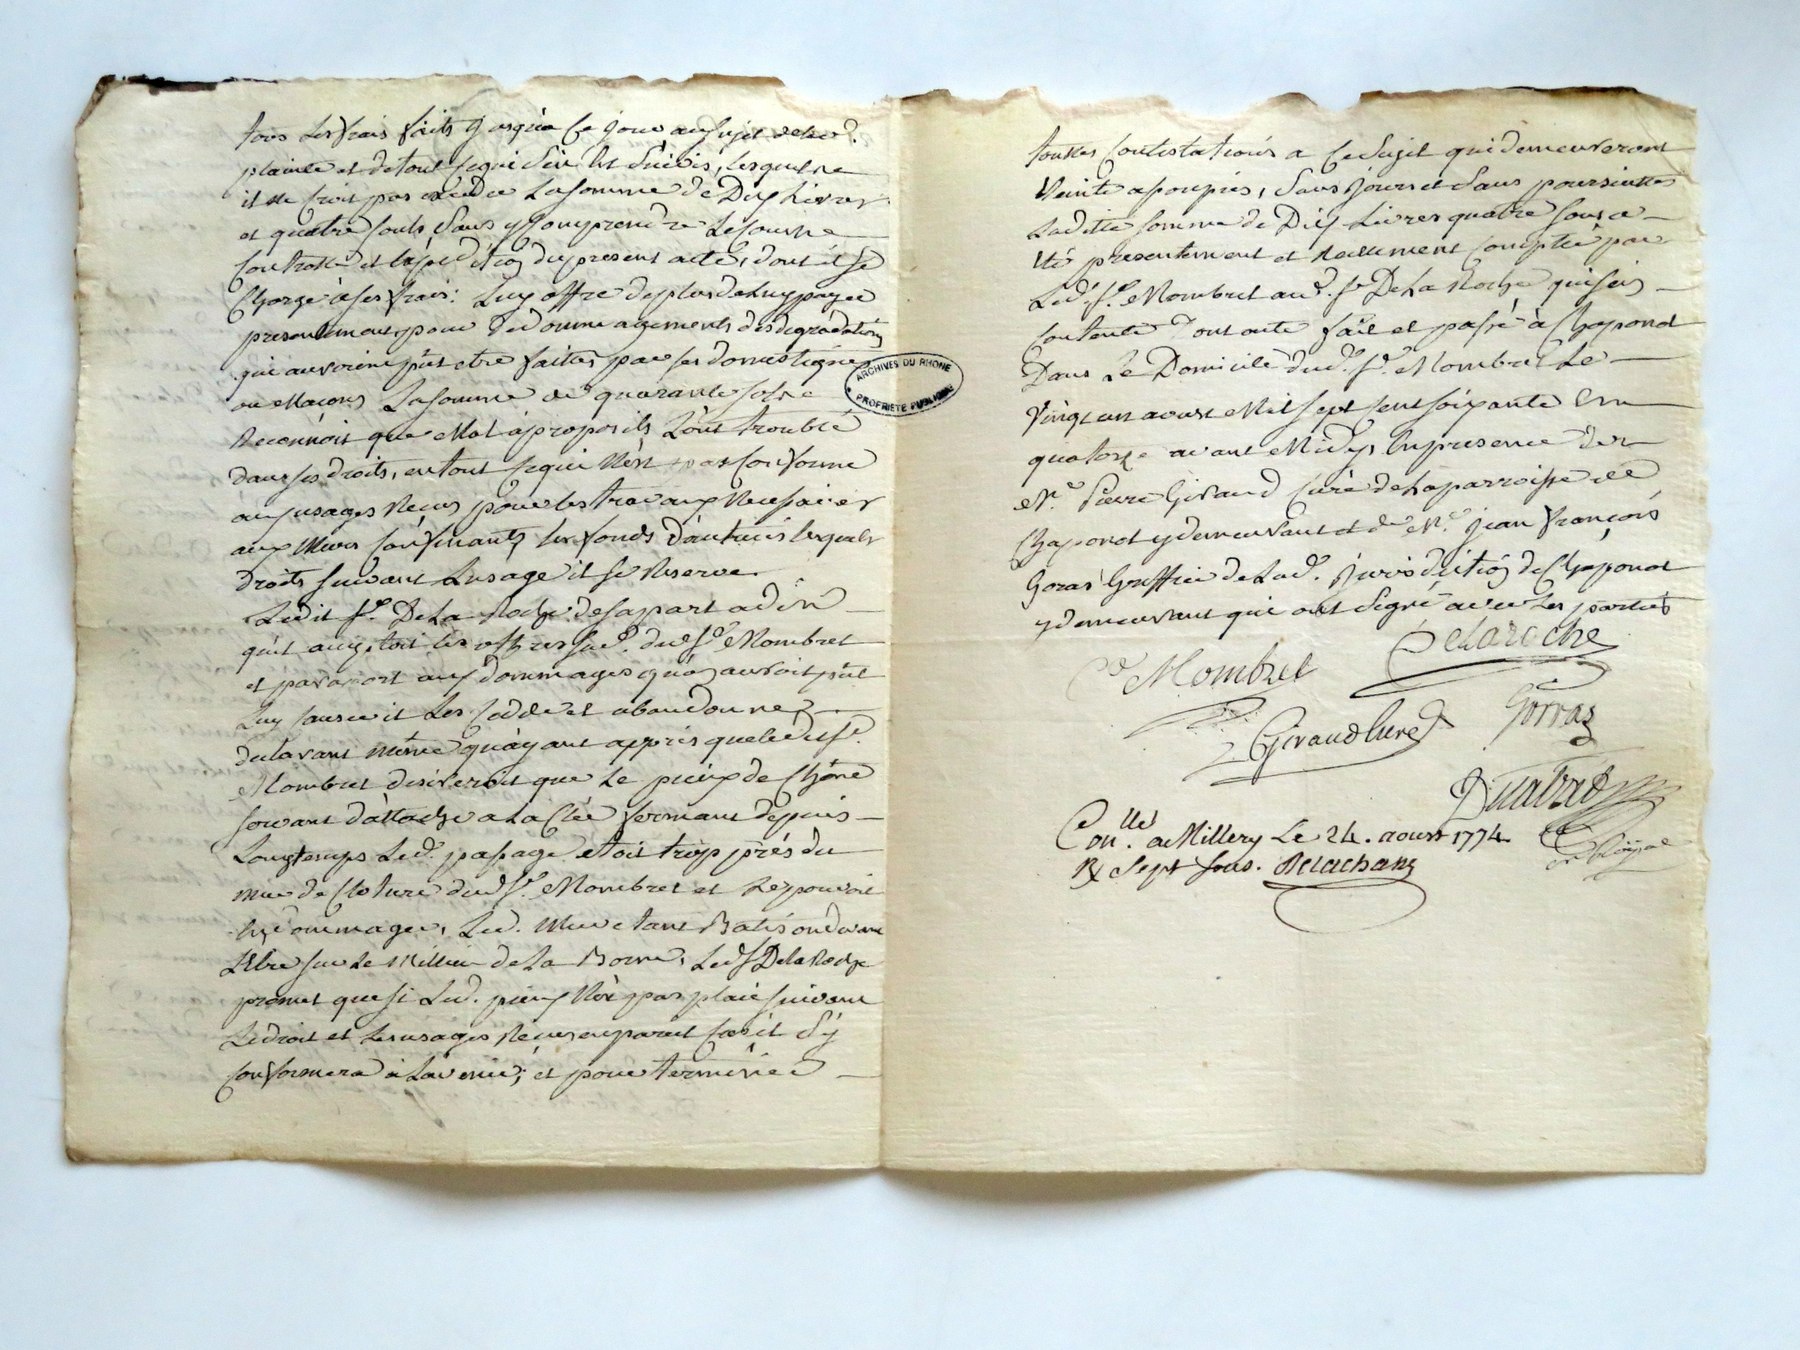 tous les frais faits Jusqu'a Ce jour au sujet de lad.
plainte et de tout ce qui s'en Est suivies, lesquels ne
il ne croit pas exceder La somme de Dix Livres
et quatre souls sans y Comprendre Le
Controlle et expedition du present acte, dont il se
Charge à ses frais: Luy offre de plus de Luy payer
presentement pour dedommagements des degradations
qui auroient pût etre faittes par ses domestiques
ou Maçons La somme de quarante sols
Reconnoit que Mal àpropos ils L'ont troublé
dans ses droits, en tout ce qui N'est pas conforme
aux usages Reçus pour les travaux Necessaires
aux Murs Confinants les fonds d'autruis lesquels
droits suivant L'usage il se Reserve.
Ledit sr. De La Roche de sa part a dit
qu'il acceptoit les offres dud. sr. Mombret
et par raport aux dommages qu'on auroit pût
Luy causer il Les Cedde et abandonne
declarant même qu'ayant appris que led. sr.
Mombret desireroit que Le pieux de Chêne
servant d'attache a La Clée fermant depuis
Longtemps Led. passage etoit trop près du
mur de Cloture dud. sr. Mombret et Le pouvoit
endommager, Led. Mur etant Bati
sur Le Millieu de La Borne, Led. sr De La Roche
promet que si Led. pieux N'est pas placé suivant
Le droit et Les usages Reçus en pareil Cas il s'y
Conformera à L'avenir; et pour terminer
ARCHIVES DU RHONE
PROPRIÉTÉ PUBLIQUE
touttes Contestations a Ce Sujet qui demeureront
eteinte assoupies, sans jours et sans poursuittes
Laditte somme de Dix Livres quatre sous a
eté presentement et reellement Comptée par
Led. sr. Mombret aud. sr De La Roche qui s'en
Contente Dont acte fait et passé à Chaponot
Dans Le Domicile dud. sr. Mombret Le
Vingt un aoust Mil sept cent soixante
quatorze avant Midy En presence de
Mr. Pierre Giraud Curé de La parroisse de
Chaponot y demeurant et de Mr. Jean François
Goras Greffier de Lad. Jurisdiction de Chaponot
y demeurant qui ont signé avec Les parties
Mombret
Delaroche
Giraud Curé
Gorras
Con.llé a Millery Le 24. aoust 1774
R sept sous. Delachang